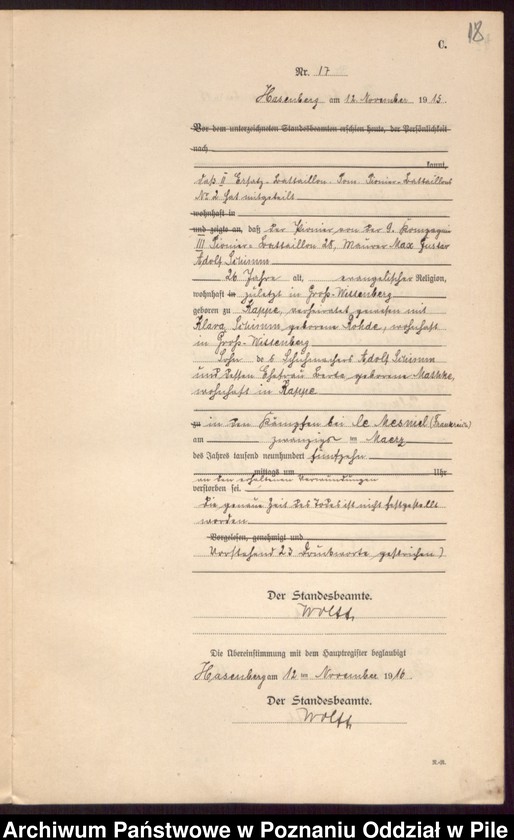 18
C.
Nr. 17
Hasenberg am 12. November 1915.
Vor dem unterzeichneten Standesbeamten erschien heute, der Persönlichkeit
nach
kannt,
daß II Ersatz-Battaillon Pom. Pionier-Battaillons
No 2 hat mitgeteilt
wohnhaft in
und zeigte an, daß der Pionier von der 9. Kompagnie
III Pionier-Battaillon 28, Maurer Max Gustav
Adolf Schramm
26 Jahre alt, evangelischer Religion,
wohnhaft in zuletzt in Groß-Wittenberg
geboren zu Kappe, verheiratet gewesen mit
Klara Schramm geborene Rohde, wohnhaft
in Groß-Wittenberg
Sohn des Schuhmachers Adolf Schramm
und dessen Ehefrau Berta geborene
wohnhaft in Kappe
zu in den Kämpfen bei le Mesnil (Frankreich)
am zwanzig ten Maerz
des Jahres tausend neunhundert fünfzehn
mittags um Uhr
an den erhaltenen Verwundungen
verstorben sei.
Die genaue Zeit des Todes ist nicht festgestellt
worden.
Vorgelesen, genehmigt und
Vorstehend 23 Druckworte gestrichen)
Der Standesbeamte.
Die Übereinstimmung mit dem Hauptregister beglaubigt
Hasenberg am 12 ten November 1916.
Der Standesbeamte.
Archiwum Państwowe w Poznaniu Oddział w Pile